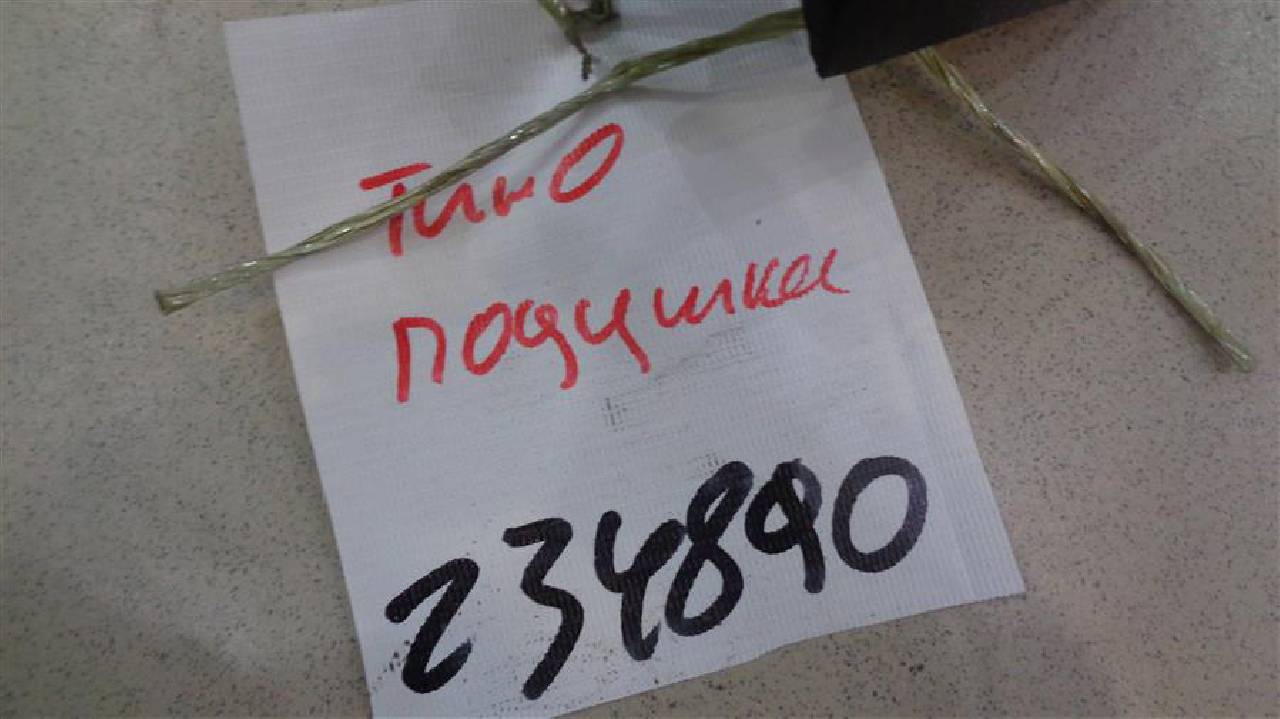 Тино
подушка
234890